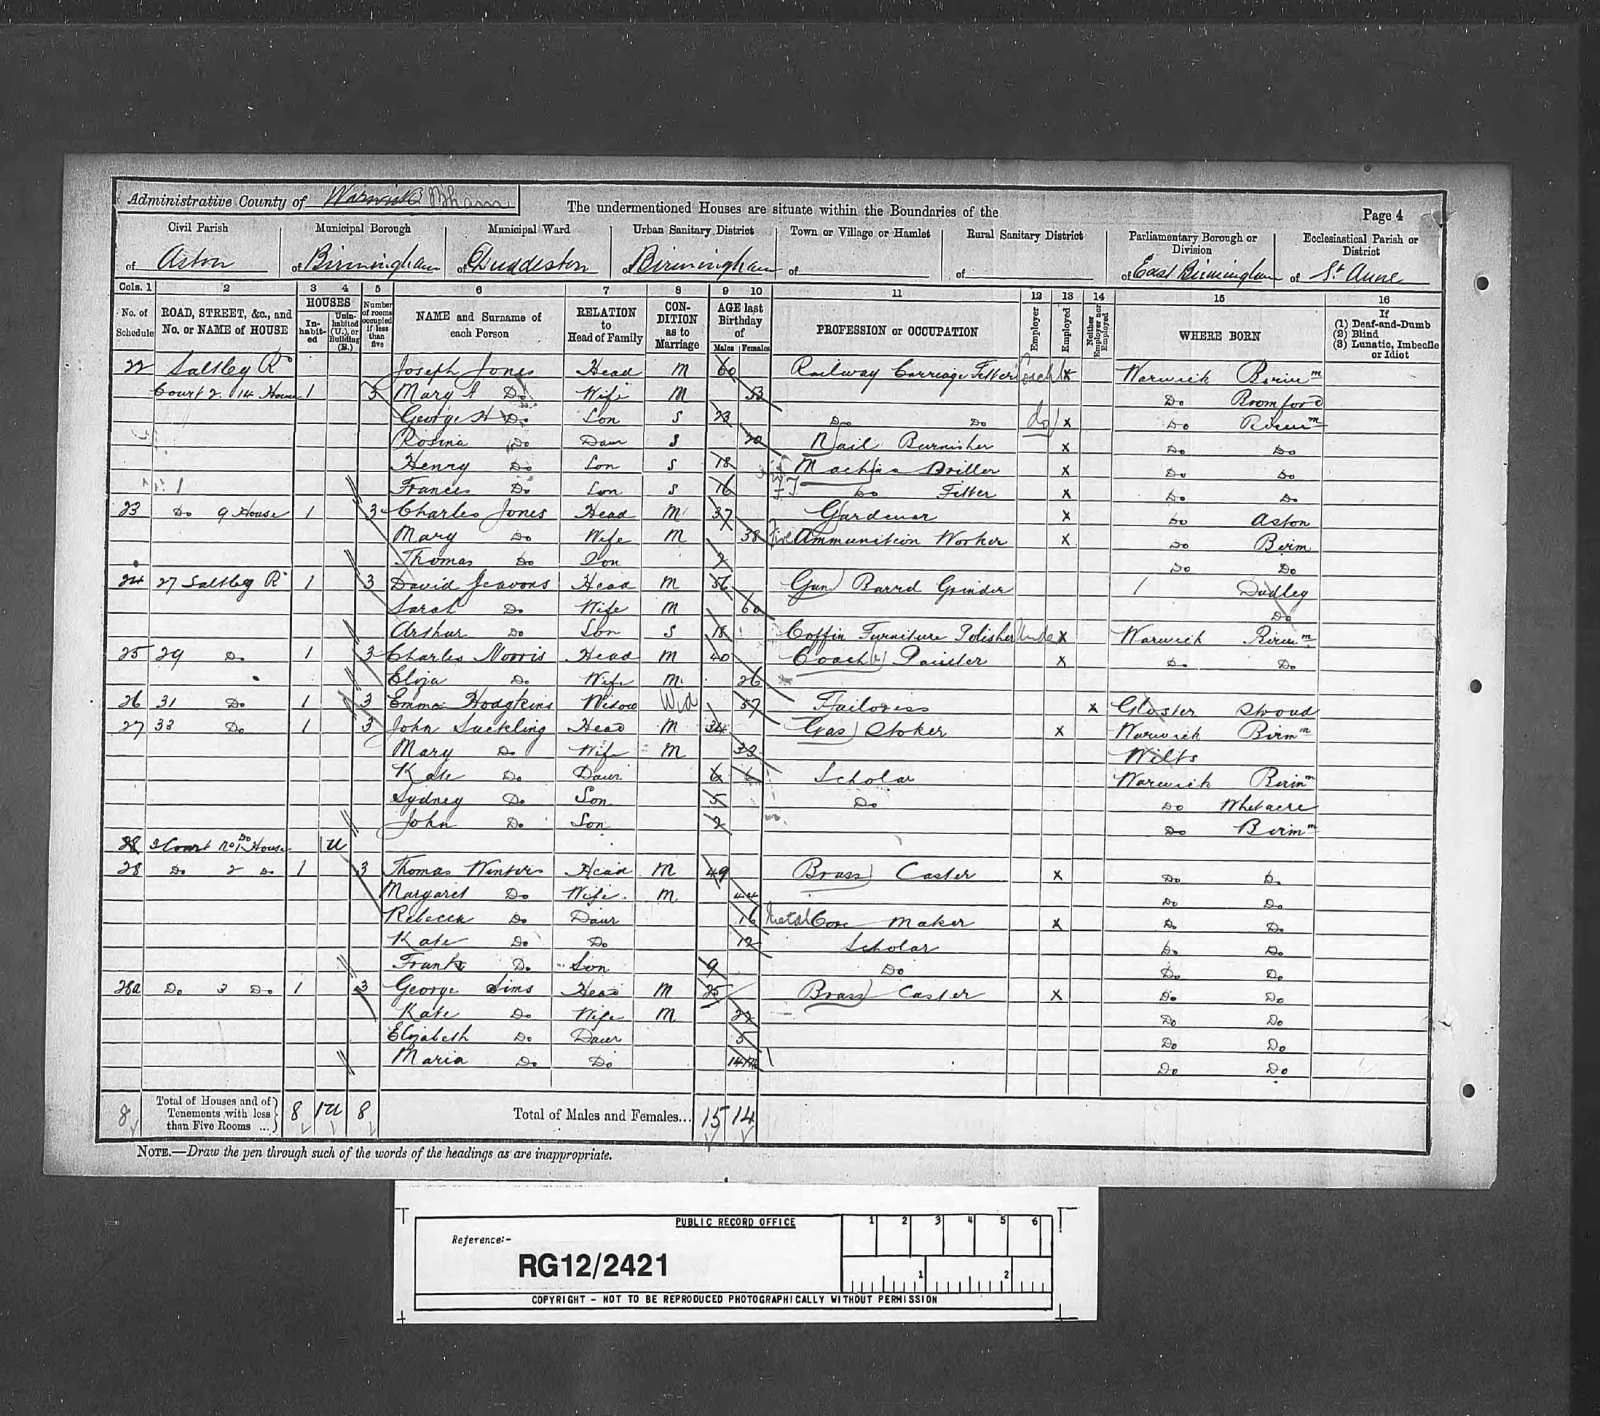 Administrative County of Warwick Bham
The undermentioned Houses are situate within the Boundaries of the
Page 4
Civil Parish Municipal Borough Municipal Ward Urban Sanitary District Town or Village or Hamlet Rural Sanitary District Parliamentary Borough or Division Ecclesiastical Parish or District
of Aston of Birmingham of Duddeston of Birmingham of of of East Birmingham of St Anne
Cols. 1 2 3 4 5 6 7 8 9 10 11 12 13 14 15 16
No. of Schedule ROAD, STREET, &c., and No. or NAME of HOUSE HOUSES Inhabited Uninhabited (U.), or Building (B.) Number of rooms occupied if less than five NAME and Surname of each Person RELATION to Head of Family CONDITION as to Marriage AGE last Birthday of Males Females PROFESSION or OCCUPATION Employer Employed Neither Employer nor Employed WHERE BORN If (1) Deaf-and-Dumb (2) Blind (3) Lunatic, Imbecile or Idiot
22 Saltley Rd Joseph Jones Head M 60 Railway Carriage Fitter x Warwick Birmm
Court 2. 14 House 1 3 Mary A Do Wife M 53 Do Bromford
George H Do Son S 23 Do Do do x Do Birmm
Rosina Do Daur S 20 Nail Burnisher x Do Do
Henry Do Son S 18 Machine Driller x Do Do
Frances Do Son S 16 Do Fitter x Do Do
23 Do 9 House 1 3 Charles Jones Head M 37 Gardener x Do Aston
Mary Do Wife M 38 Ammunition Worker x Do Birm
Thomas Do Son 2 Do Do
24 27 Saltley Rd 1 3 David Jeavons Head M 56 Gun Barrel Grinder Dudley
Sarah Do Wife M 60 Do
Arthur Do Son S 18 Coffin Furniture Polisher x Warwick Birmm
25 29 Do 1 3 Charles Norris Head M 40 Coach Painter x Do Do
Eliza Do Wife M 26
26 31 Do 1 3 Emma Hodgkins Widow Wid 57 Tailoress x Gloster Stroud
27 33 Do 1 3 John Suckling Head M 34 Gas Stoker x Warwick Birmm
Mary Do Wife M 32 Wilts
Kate Do Daur 6 6 Scholar Warwick Birmm
Sydney Do Son 5 Do Do Whitacre
John Do Son 2 Do Birmm
28 2 Court No 1 Do House U
28 Do 2 Do 1 3 Thomas Winters Head M 49 Brass Caster x Do Do
Margaret Do Wife M 44 Do Do
Rebecca Do Daur 16 Metal Core Maker x Do Do
Kate Do Do 12 Scholar Do Do
Frank Do Son 9 Do Do Do
28a Do 3 Do 1 3 George Sims Head M 25 Brass Caster x Do Do
Kate Do Wife M 22 Do Do
Elizabeth Do Daur 5 Do Do
Maria Do Do Do Do
8 Total of Houses and of Tenements with less than Five Rooms ... 8 1U 8 Total of Males and Females... 15 14
NOTE.—Draw the pen through such of the words of the headings as are inappropriate.
PUBLIC RECORD OFFICE
1 2 3 4 5 6
Reference:-
RG12/2421
1 2
COPYRIGHT - NOT TO BE REPRODUCED PHOTOGRAPHICALLY WITHOUT PERMISSION